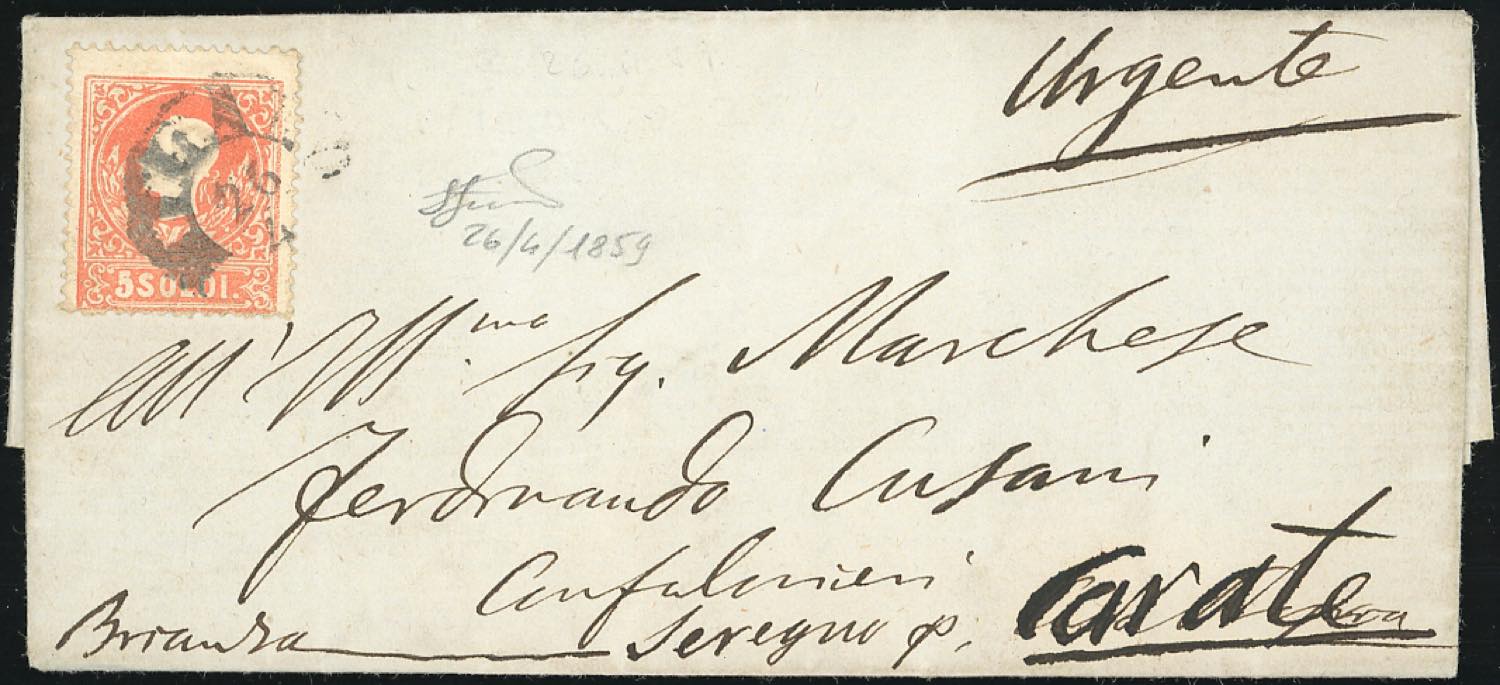 Urgente
26/4/1859
5 SOLDI.
All' Ill.mo Sig. Marchese
Ferdinando Cusani
Confalonieri
Brianza Seregno p. Carate